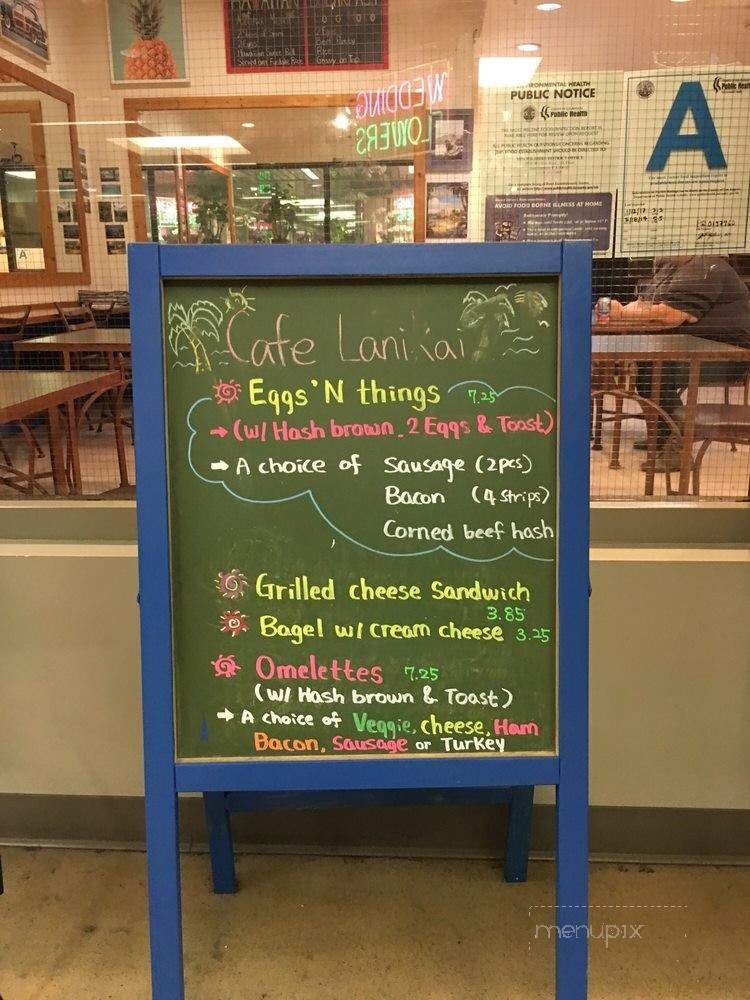 HAWAIIAN BREAKFAST
WEDDING
FLOWERS
ENVIRONMENTAL HEALTH
PUBLIC NOTICE
Public Health
AVOID FOOD BORNE ILLNESS AT HOME
A
Public Health
A
Cafe Lanikai
Eggs 'N things 7.25
→ (w/ Hash brown, 2 Eggs & Toast)
→ A choice of Sausage (2pcs)
Bacon (4 strips)
Corned beef hash
Grilled cheese Sandwich
3.85
Bagel w/ cream cheese 3.25
Omelettes 7.25
(w/ Hash brown & Toast)
→ A choice of Veggie, cheese, Ham
Bacon, Sausage or Turkey
menupix